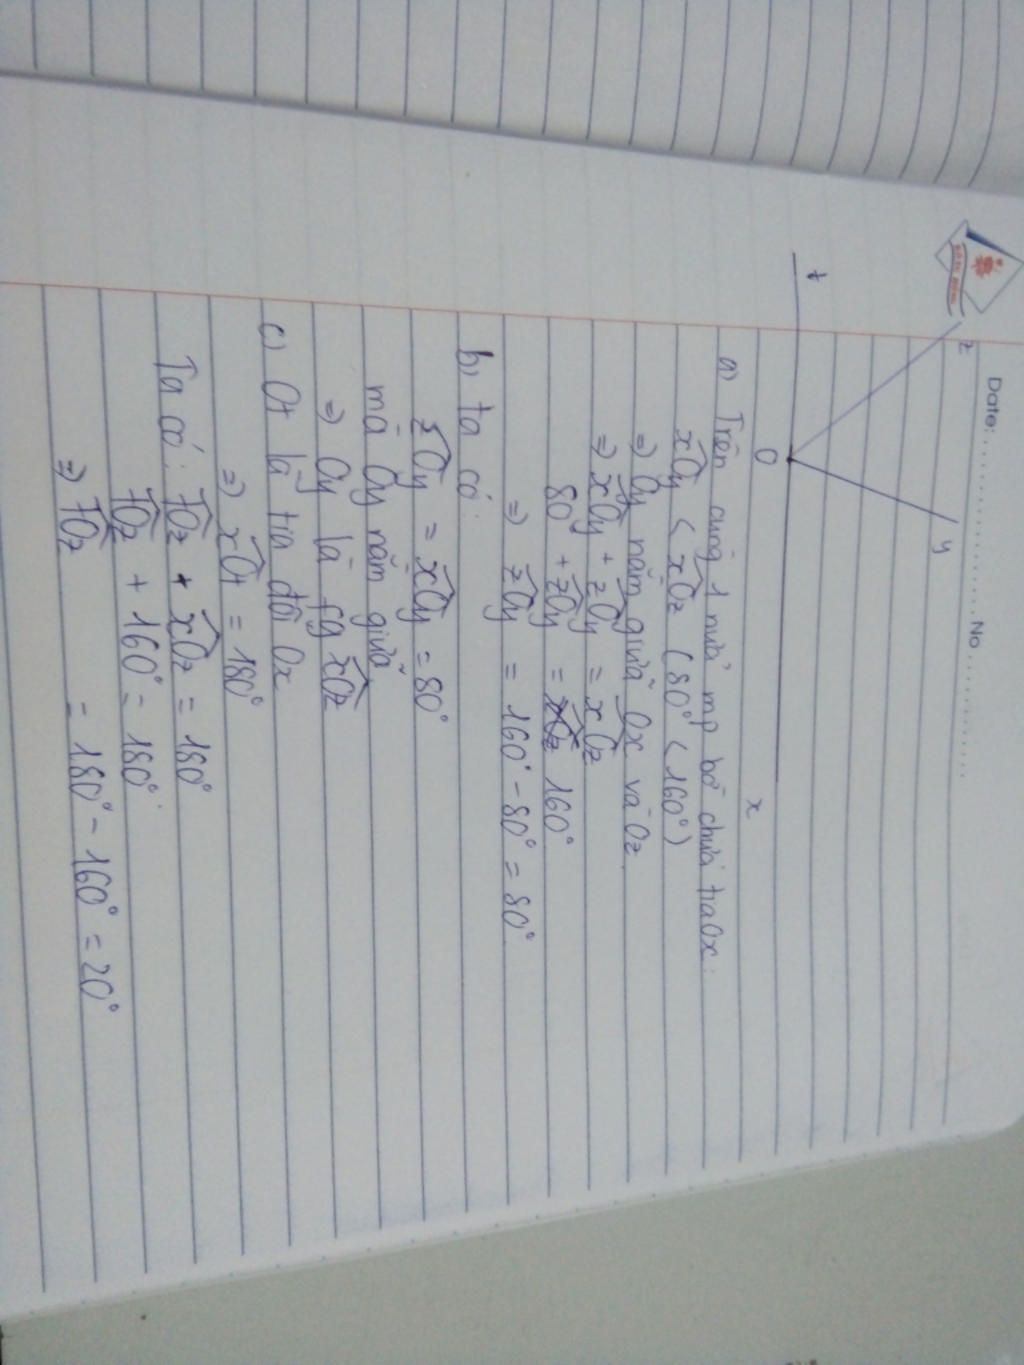 Date: .................... No ....................
z
y
t
O
x
a) Trên cùng 1 nửa mp bờ chứa tia Ox:
xOy < xOz (80° < 160°)
=> Oy nằm giữa Ox và Oz
=> xOy + zOy = xOz
80 + zOy = 160°
=> zOy = 160° - 80° = 80°
b) ta có:
zOy = xOy = 80°
mà Oy nằm giữa
=> Oy là fg xOz
c) Ot là tia đối Ox
=> xOt = 180°
Ta có: tOz + xOz = 180°
tOz + 160° = 180°
=> tOz = 180° - 160° = 20°